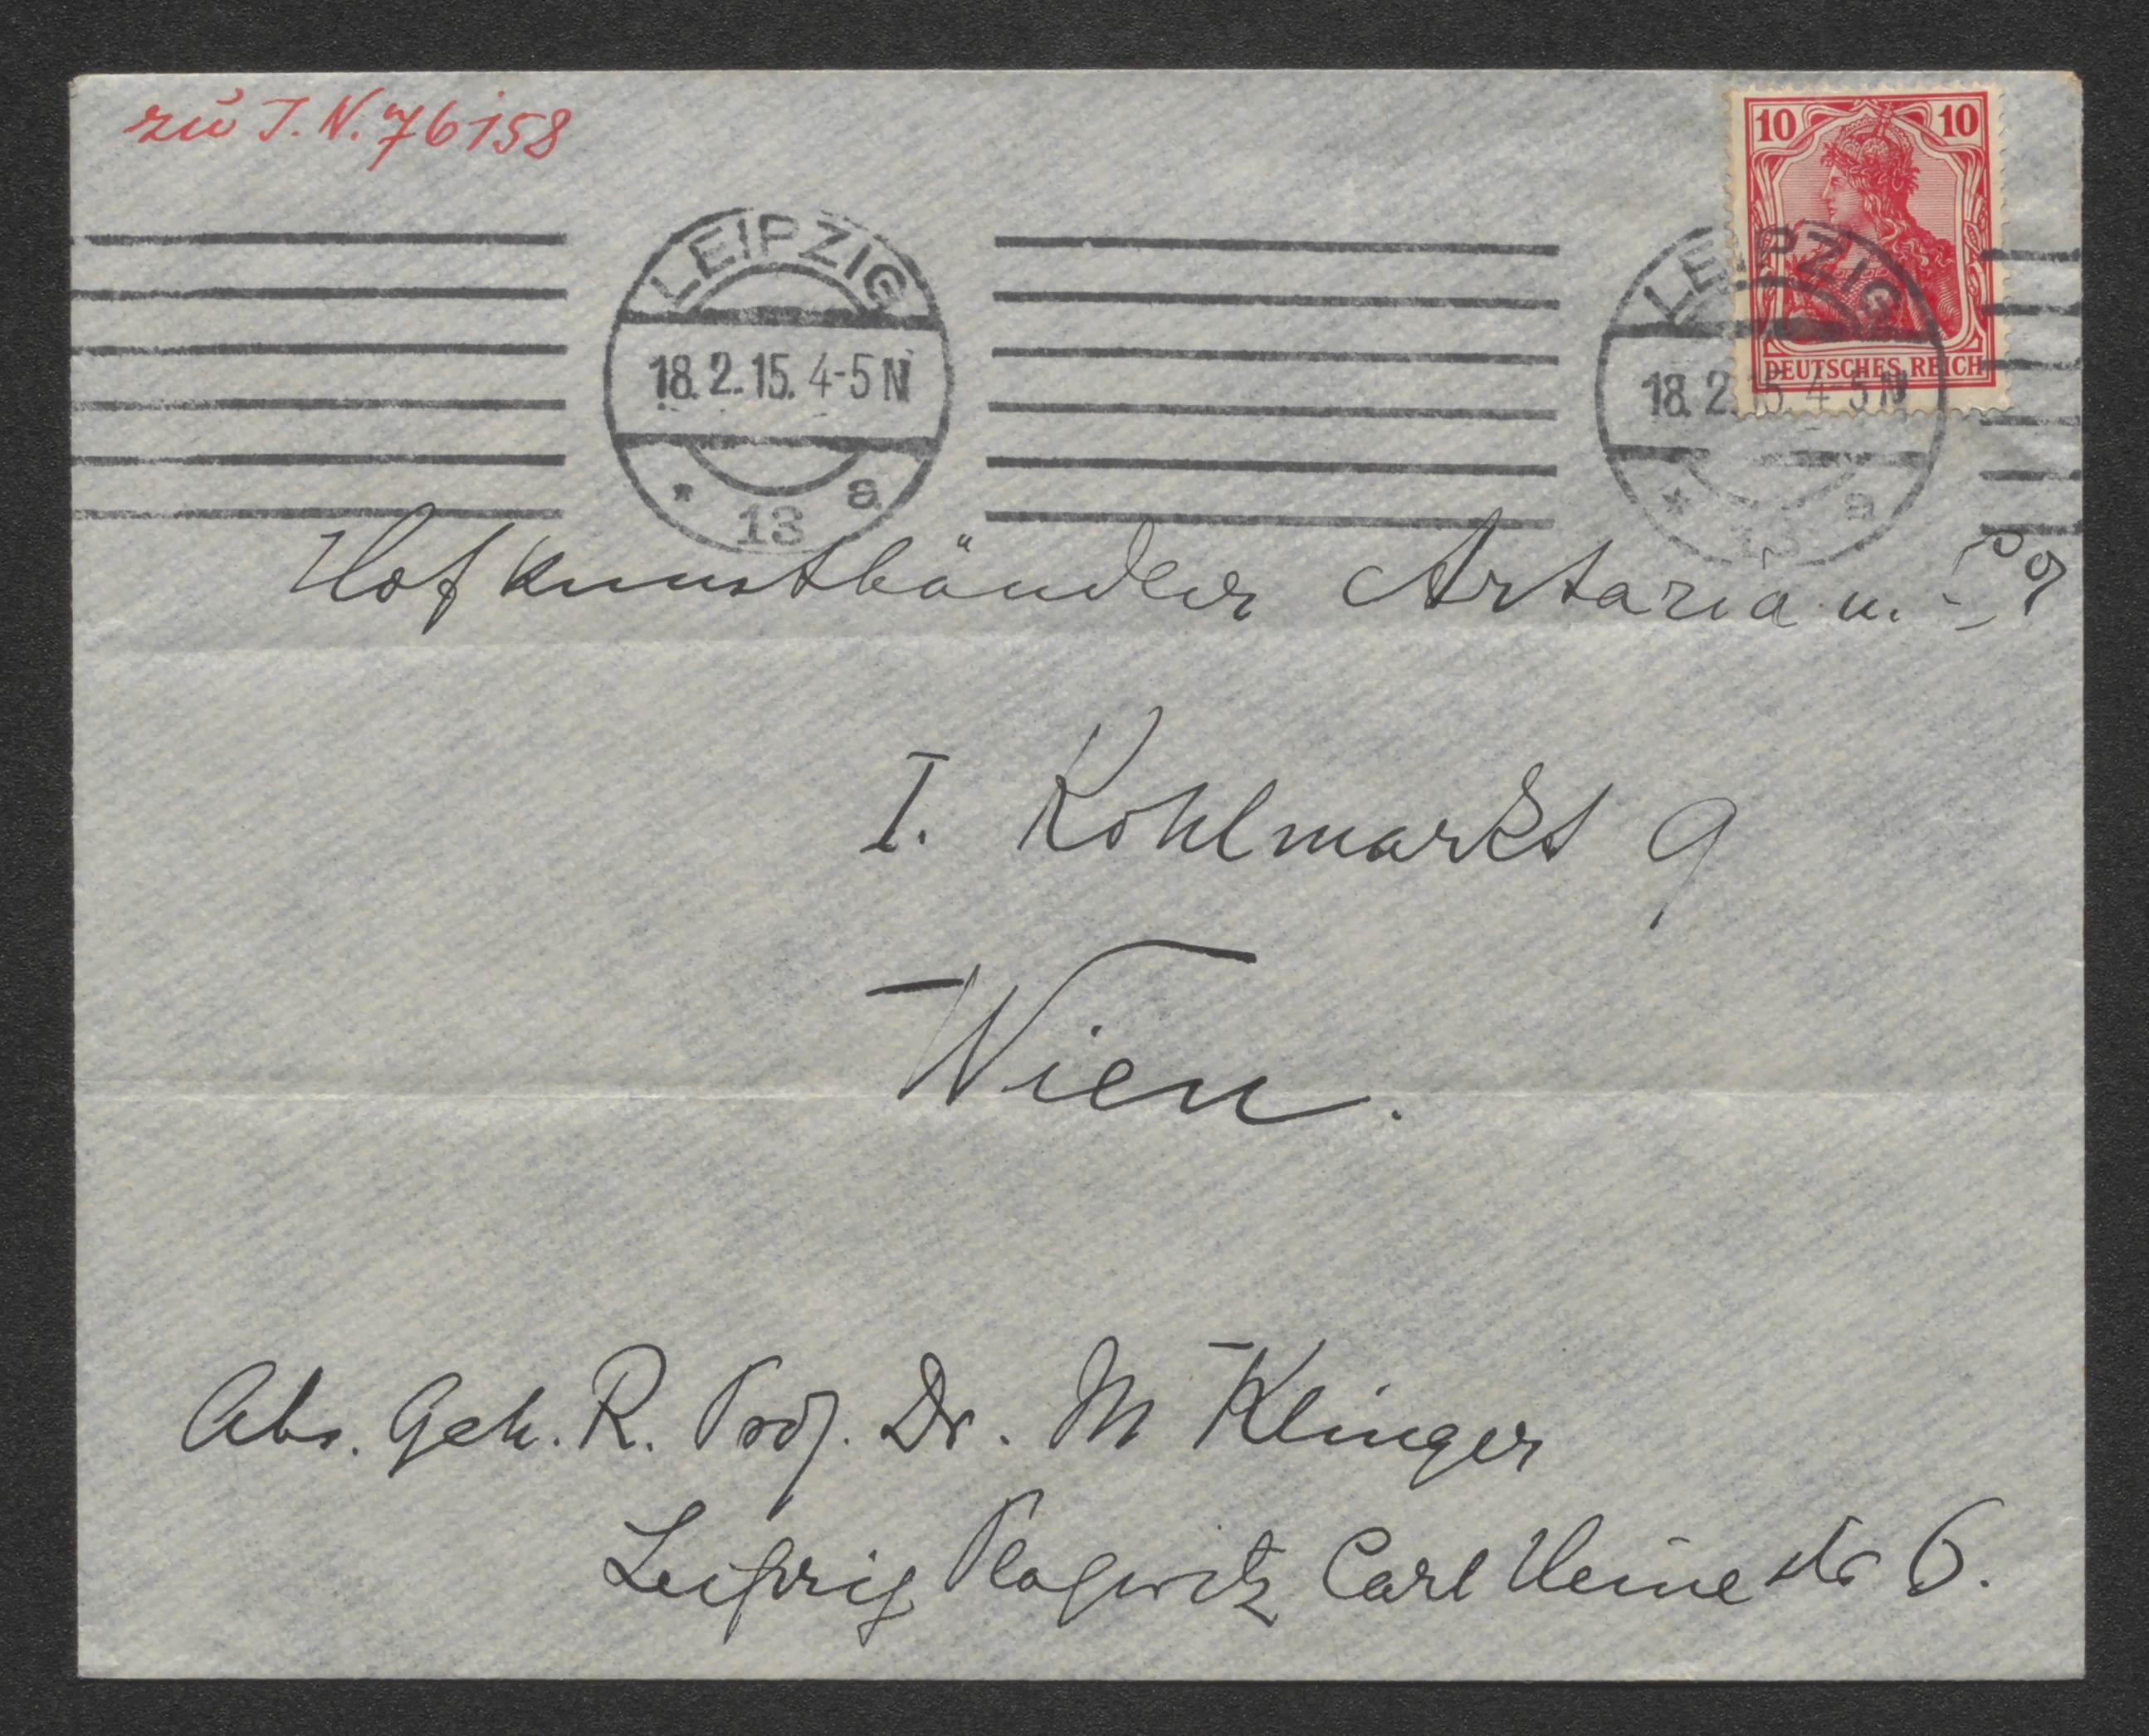 zu I.N. 76158
10 10
DEUTSCHES REICH
LEIPZIG
18.2.15. 4-5 N
* 13 a
LEIPZIG
18.2.15. 4-5 N
* 13 a
Hofkunsthändler Artaria u. Co
I. Kohlmarkt 9
Wien.
Abs. Geh. R. Prof. Dr. M Klinger
Leipzig Plagwitz Carl Heine str 6.